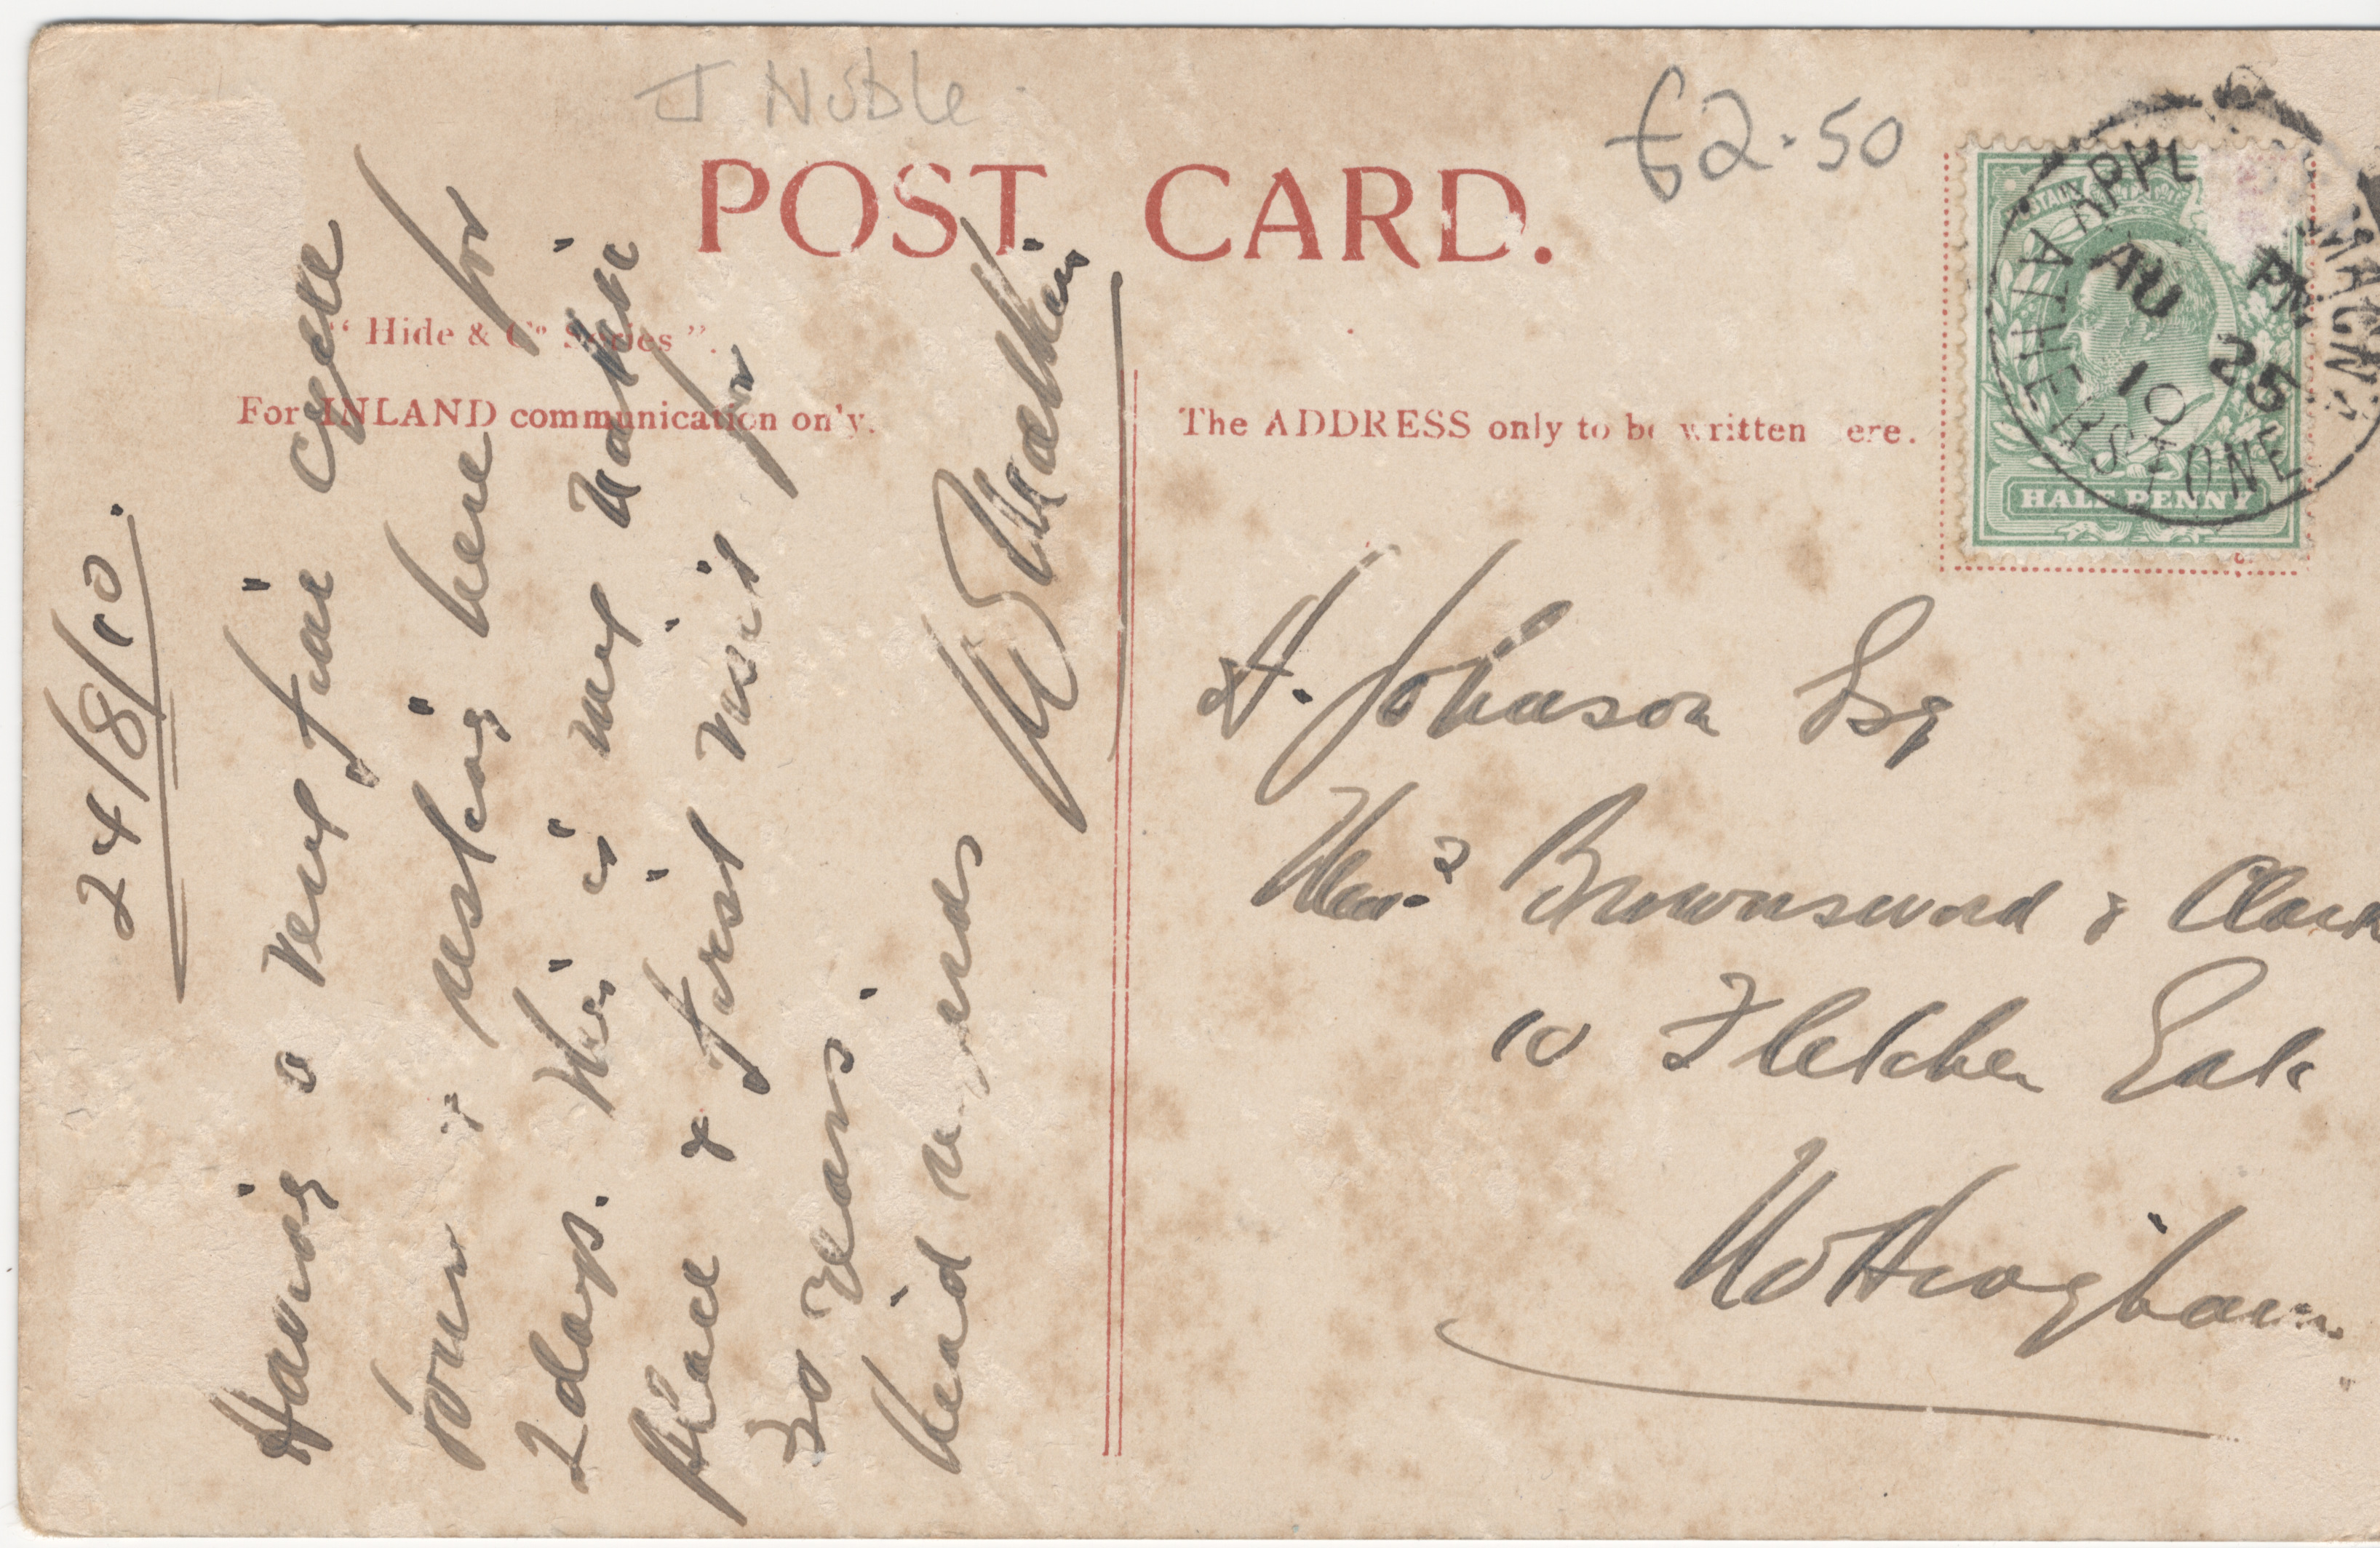 J Noble
£2.50
POST CARD.
"Hide & Co Series".
For INLAND communication only.
The ADDRESS only to be written here.
24/8/10.
Having a very fine cycle
tour & resting here for
2 days. This is my native
place & first visit for
30 years.
Kind regards
H. Johnson Esq
Messrs Brownsword & Clark
10 Fletcher Gate
Nottingham
APPL MAGN
AU 25
PM
10
ATHERSTONE
HALF PENNY